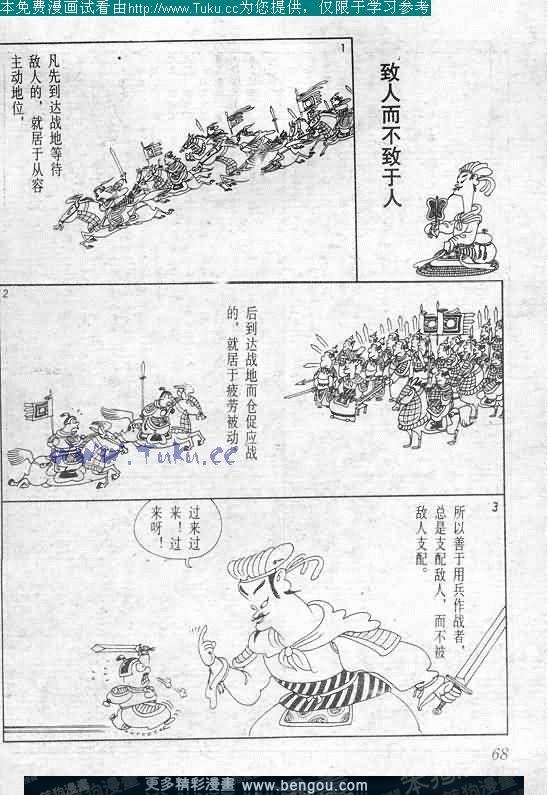 本免费漫画试看由http://www.Tuku.cc为您提供，仅限于学习参考
致人而不致于人
1
凡先到达战地等待
敌人的，就居于从容
主动地位，
2
后到达战地而仓促应战
的，就居于疲劳被动
www.Tuku.cc
3
所以善于用兵作战者，
总是支配敌人，而不被
敌人支配。
过来过
来！过
来呀！
68
更多精彩漫畫 www.bengou.com
笨狗漫畫